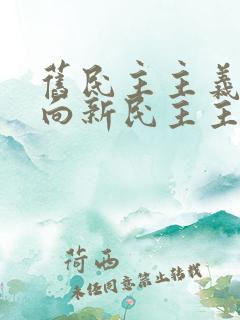 舊民主主義
向新民主主
荷西
未經同意禁止轉載